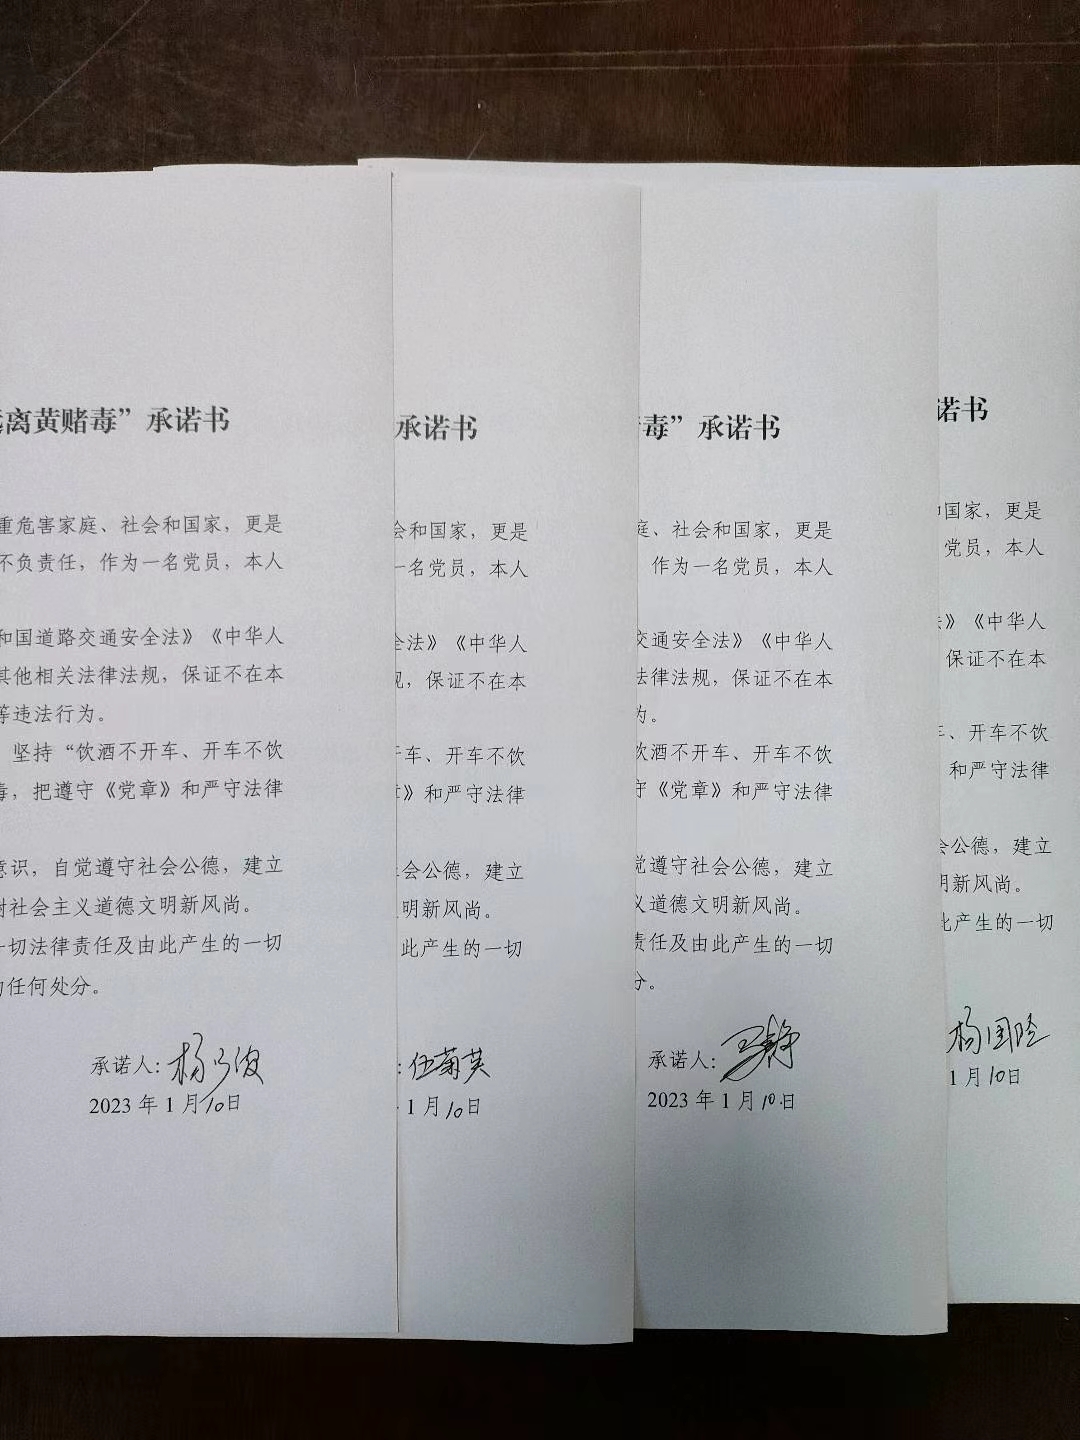 离黄赌毒”承诺书
重危害家庭、社会和国家，更是
不负责任，作为一名党员，本人
和国道路交通安全法》《中华人
其他相关法律法规，保证不在本
等违法行为。
坚持“饮酒不开车、开车不饮
毒，把遵守《党章》和严守法律
意识，自觉遵守社会公德，建立
树社会主义道德文明新风尚。
一切法律责任及由此产生的一切
任何处分。
承诺人：杨
2023 年 1 月 10 日
承诺书
会和国家，更是
一名党员，本人
全法》《中华人
规，保证不在本
开车、开车不饮
章》和严守法律
社会公德，建立
文明新风尚。
此产生的一切
：伍菊英
1 月 10 日
毒”承诺书
庭、社会和国家，更是
作为一名党员，本人
交通安全法》《中华人
法律法规，保证不在本
为。
饮酒不开车、开车不饮
守《党章》和严守法律
觉遵守社会公德，建立
义道德文明新风尚。
责任及由此产生的一切
分。
承诺人：王静
2023 年 1 月 10 日
诺书
和国家，更是
党员，本人
法》《中华人
保证不在本
车、开车不饮
和严守法律
会公德，建立
明新风尚。
此产生的一切
杨国
1 月 10 日